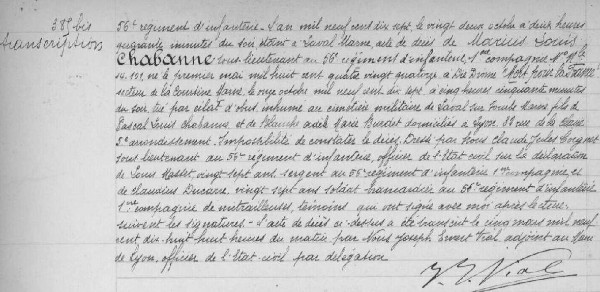 38 bis
transcription
56e regiment d'infanterie. L'an mil neuf cent dix sept, le vingt deux octobre à deux heures
quarante minutes du soir, étant à Laval Marne, acte de décès de Marius Louis
Chabanne sous lieutenant au 56e regiment d'infanterie, 1ere compagnie, No Mle
14.151, né le premier mai mil huit cent quatre vingt quatorze à Die Drôme "Mort pour la France"
secteur de Marne, le onze octobre mil neuf cent dix sept à cinq heures cinquante minutes
du soir, tué par éclat d'obus inhumé au cimetière militaire de Laval sur Tourbe Marne fils de
Pascal Louis Chabanne, et de Blanche Marie Burdet domiciliés à Lyon, 82 rue de la Claire
5e arrondissement. Impossibilité de constater le décès. Dressé par Nous Claude Jules
sous lieutenant au 56e regiment d'infanterie, officier de l'Etat civil sur la déclaration
de Louis Masset, vingt sept ans sergent au 56e regiment d'infanterie 1ere compagnie, et
de Claudius Ducarre vingt sept ans soldat au 56e regiment d'infanterie
1ere compagnie de mitrailleuses, témoins qui ont signé avec moi après lecture,
suivent les signatures. L'acte de décès ci-dessus a été transcrit le cinq mars mil neuf
cent dix-huit huit heures du matin par Nous Joseph Ernest Vial, adjoint au Maire
de Lyon, officier de l'Etat civil par délégation
J. E. Vial